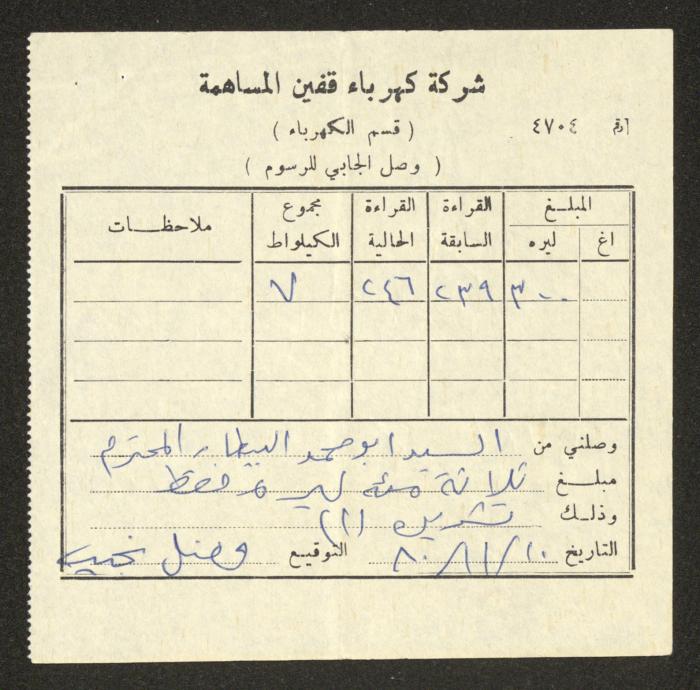 شركة كهرباء قفين المساهمة
رقم ٤٧٠٤
( قسم الكهرباء )
( وصل الجابي للرسوم )
المبلغ القراءة السابقة القراءة الحالية مجموع الكيلواط ملاحظات
اغ ليره
٣٠٠ ٢٣٩ ٢٤٦ ٧
وصلني من السيد ابو محمد البيطار المحترم
مبلغ ثلاثة مئة ليرة فقط
وذلك تشرين (٢)
التاريخ ٨٠/١١/١٠ التوقيع